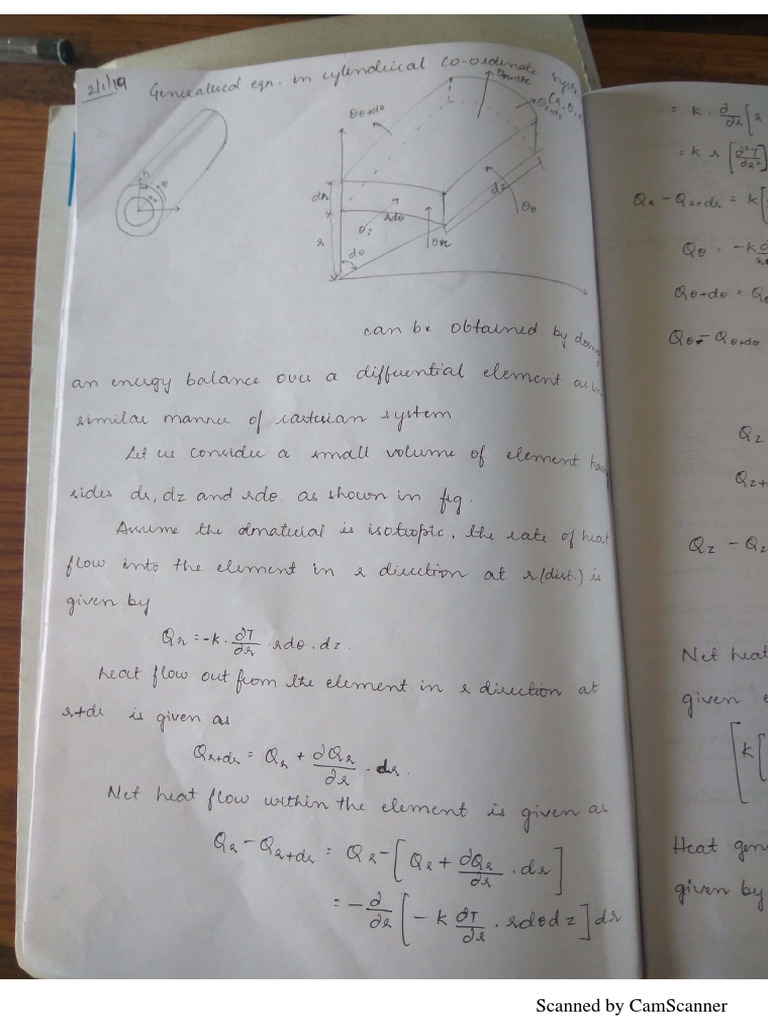 2/1/19 Generalised eqn. in cylindrical co-ordinate
(r, θ,
θθ+dθ
dr
r
rdθ
dθ
θz
θr
dz
θθ
can be obtained by doing
an energy balance over a differential element as in
similar manner of cartesian system
Let us consider a small volume of element
sides dr, dz and rdθ. as shown in fig.
Assume the dmaterial is isotropic. the rate of heat
flow into the element in r direction at r(dist.) is
given by
Qr = -k · ∂T/∂r · rdθ · dz.
heat flow out from the element in r direction at
r+dr is given as
Qr+dr = Qr + ∂Qr/∂r · dr.
Net heat flow within the element is given as
Qr - Qr+dr = Qr - [Qr + ∂Qr/∂r · dr]
= -∂/∂r [-k ∂T/∂r · rdθdz] dr
= k · ∂/∂r [r
= k r [∂²T/∂r²]
Qr - Qr+dr = k[
Qθ = -k
Qθ+dθ = Qθ
Qθ - Qθ+dθ
Qz
Qz+
Qz - Qz
Net heat
given
[k[
Heat gen
given by
Scanned by CamScanner